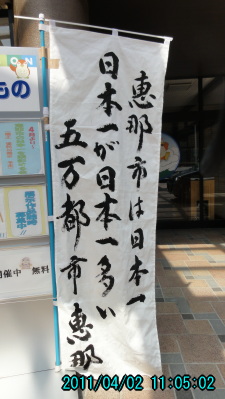 恵那市は日本一
日本一が日本一多い
五万都市恵那
ON
もの
開催中 無料
2011/04/02 11:05:02